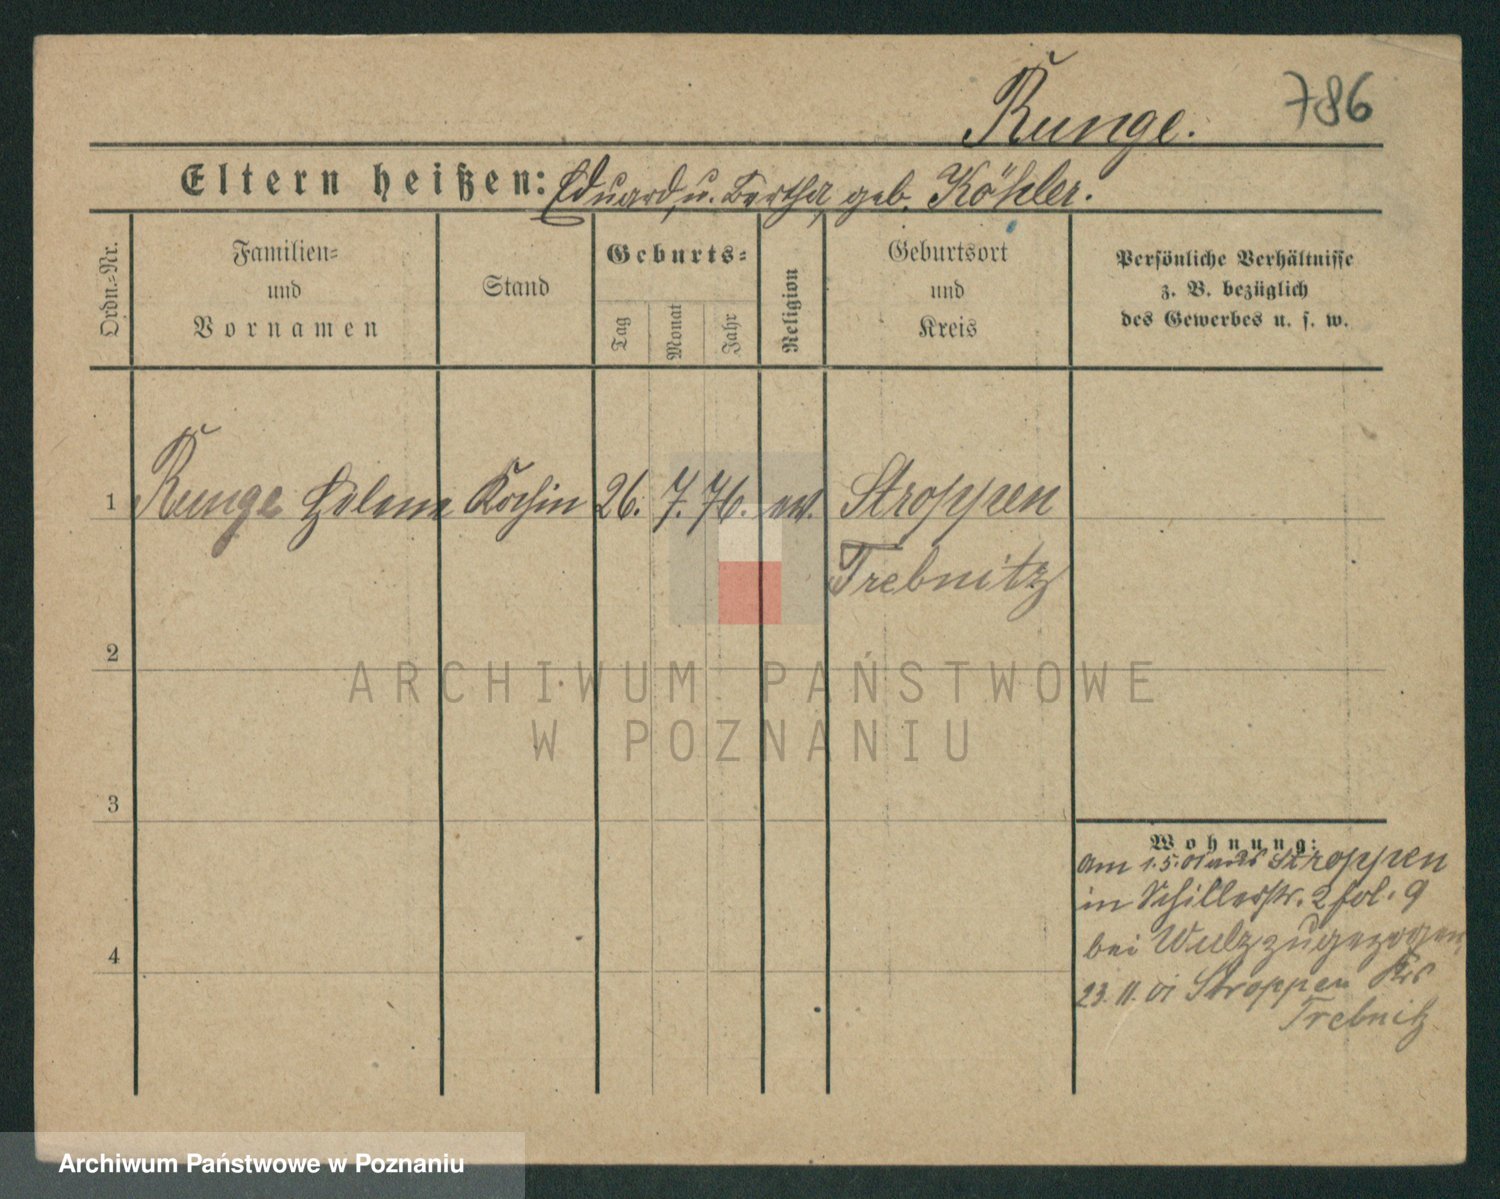 Runge.
786
Eltern heißen: Eduard, u. Bertha, geb. Köhler.
Ordn.-Nr.
Familien-
und
Vornamen
Stand
Geburts-
Tag
Monat
Jahr
Religion
Geburtsort
und
Kreis
Persönliche Verhältnisse
z. B. bezüglich
des Gewerbes u. s. w.
1 Runge Helene Köchin 26. 7. 76. ev. Stroppen
Trebnitz
2
3
4
Wohnung:
am 1.5.01 aus Stroppen
in Schillerstr. 2 fol. 9
bei Wulz zugezogen
23.11.01 Stroppen Krs
Trebnitz
ARCHIWUM PAŃSTWOWE
W POZNANIU
Archiwum Państwowe w Poznaniu